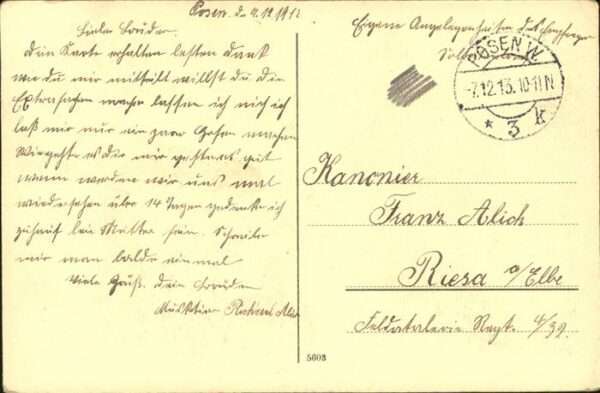 Posen, d. 4.12.1913
Liebe Bruder.
Dein Karte erhalten besten Dank
wie du mir mitteilst willst du dir
Extrasachen machen lassen ich nich ich
laß mir nur ein paar Hosen machen
Wie geht es dir mir geht es gut
wann werden wir uns mal
wiedersehen über 14 Tagen gedenke ich
zuhaus bei Mutter sein. Schreibe
mir man balde einmal
Viele Grüß. Dein Bruder
Musketier
Eigene Angelegenheit des Empfänger
POSEN W.
-7.12.13.10-11N
* 3 k
Kanonier
Franz Alich
Riesa a/Elbe
Feldartalerie Regt. 4/39.
5603